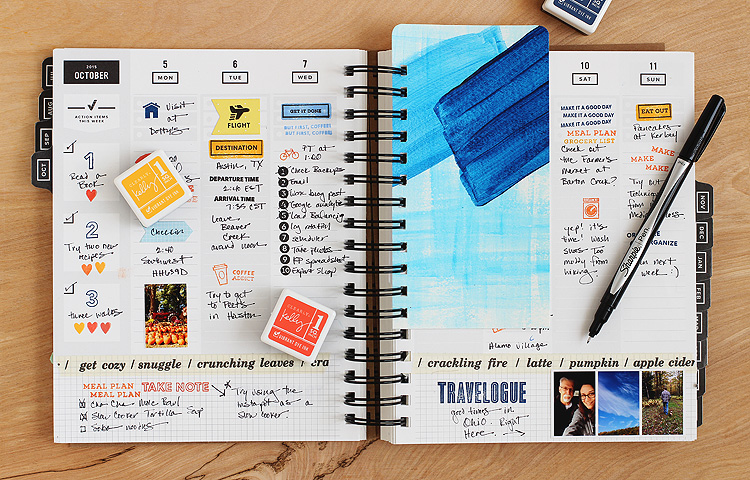 2015
OCTOBER
ACTION ITEMS
THIS WEEK
1
Read a
Book
2
Try two new
recipes
3
three walks
5
MON
Visit
at
CheckIn
2:40
Southwest
6
TUE
FLIGHT
DESTINATION
Austin, TX
DEPARTURE TIME
EST
ARRIVAL TIME
7:35 CST
Leave
Beaver
Creek
around noon
COFFEE
ADDICT
Try to get
to Peet's
in Houston
7
WED
GET IT DONE
BUT FIRST, COFFEE!
BUT FIRST, COFFEE!
PT at
1:00
1 Check Backups
2 Email
3 Work blog post
4 Google analytics
5 Load Balancing
6 log rotation
7 scheduler
8 Take photos
9 PP spreadsheet
10 Expins Shop
kelly
1
VIBRANT DYE INK
kelly
1
VIBRANT DYE INK
VIBRANT DYE INK
AUG
SEP
OCT
/ get cozy / snuggle / crunching leaves / cra
MEAL PLAN
MEAL PLAN
TAKE NOTE
Cha Cha Mole Bowl
Slow Cooker Tortilla Soup
Soba noodles
Try using the
instapot as a
Slow cooker.
10
SAT
MAKE IT A GOOD DAY
MAKE IT A GOOD DAY
MAKE IT A GOOD DAY
MEAL PLAN
GROCERY LIST
Check out
the Farmers
Market at
Barton Creek?
yep! it's
time! Wash
shoes too
muddy from
hiking.
11
SUN
EAT OUT
Pancakes
at Kerbey
MAKE
MAKE
MAKE
Try out
Technique
from
ORGANIZE
in next
week :)
Sharpie Pen
NOV
DEC
JAN
Alamo village
/ crackling fire / latte / pumpkin / apple cider
TRAVELOGUE
good times in
Ohio. Right
Here...